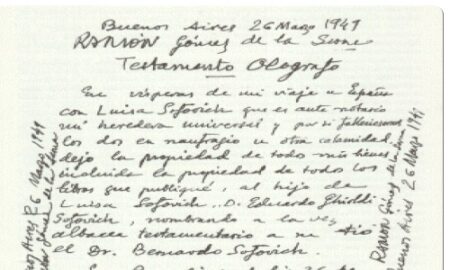 Buenos Aires 26 Marzo 1949
RAMÓN Gómez de la Serna
Testamento Olografo
En vísperas de mi viaje a España
con Luisa Sofovich que es ante notario
mi heredera universal y por si falleciesemos
los dos en naufragio u otra calamidad
dejo la propiedad de todos mis bienes
incluida la propiedad de todos los
libros que publiqué, al hijo de
Luisa Sofovich.. D. Eduardo Ghioldi
Sofovich, nombrando a la vez
albacea testamentario a su tío
el Dr. Bernardo Sofovich.
Buenos Aires 26 Marzo 1949
Ramón Gómez de la Serna
Ramón Gómez de la Serna
Buenos Aires 26 Marzo 1949